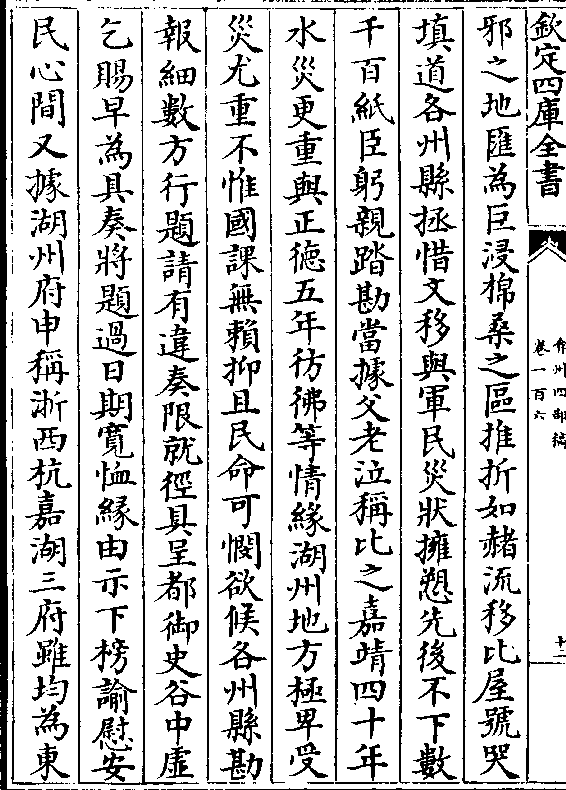 欽定四庫全書
弇州四部稿
卷一百六
十二
邪之地匯為巨浸棉桑之區摧折如赭流移比屋號哭
填道各州縣拯惜文移與軍民災狀擁愬先後不下數
千百紙臣躬親踏勘當據父老泣稱比之嘉靖四十年
水災更重與正德五年彷彿等情緣湖州地方極卑受
災尤重不惟國課無賴抑且民命可憫欲候各州縣勘
報細數方行題請有違奏限就徑具呈都御史谷中虛
乞賜早為具奏將題過日期寬恤緣由示下榜諭慰安
民心間又據湖州府申稱浙西杭嘉湖三府雖均為東